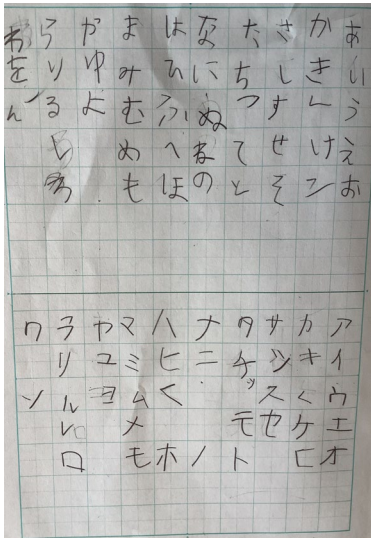 あいうえお
かきくけこ
さしすせそ
たちつてと
なにぬねの
はひふへほ
まみむめも
やゆよ
らりるれろ
わをん
アイウエオ
カキクケコ
サシスセ
タチッテト
ナニノ
ハヒくホ
マミムメモ
ヤユヨ
ラリルレロ
ワソ